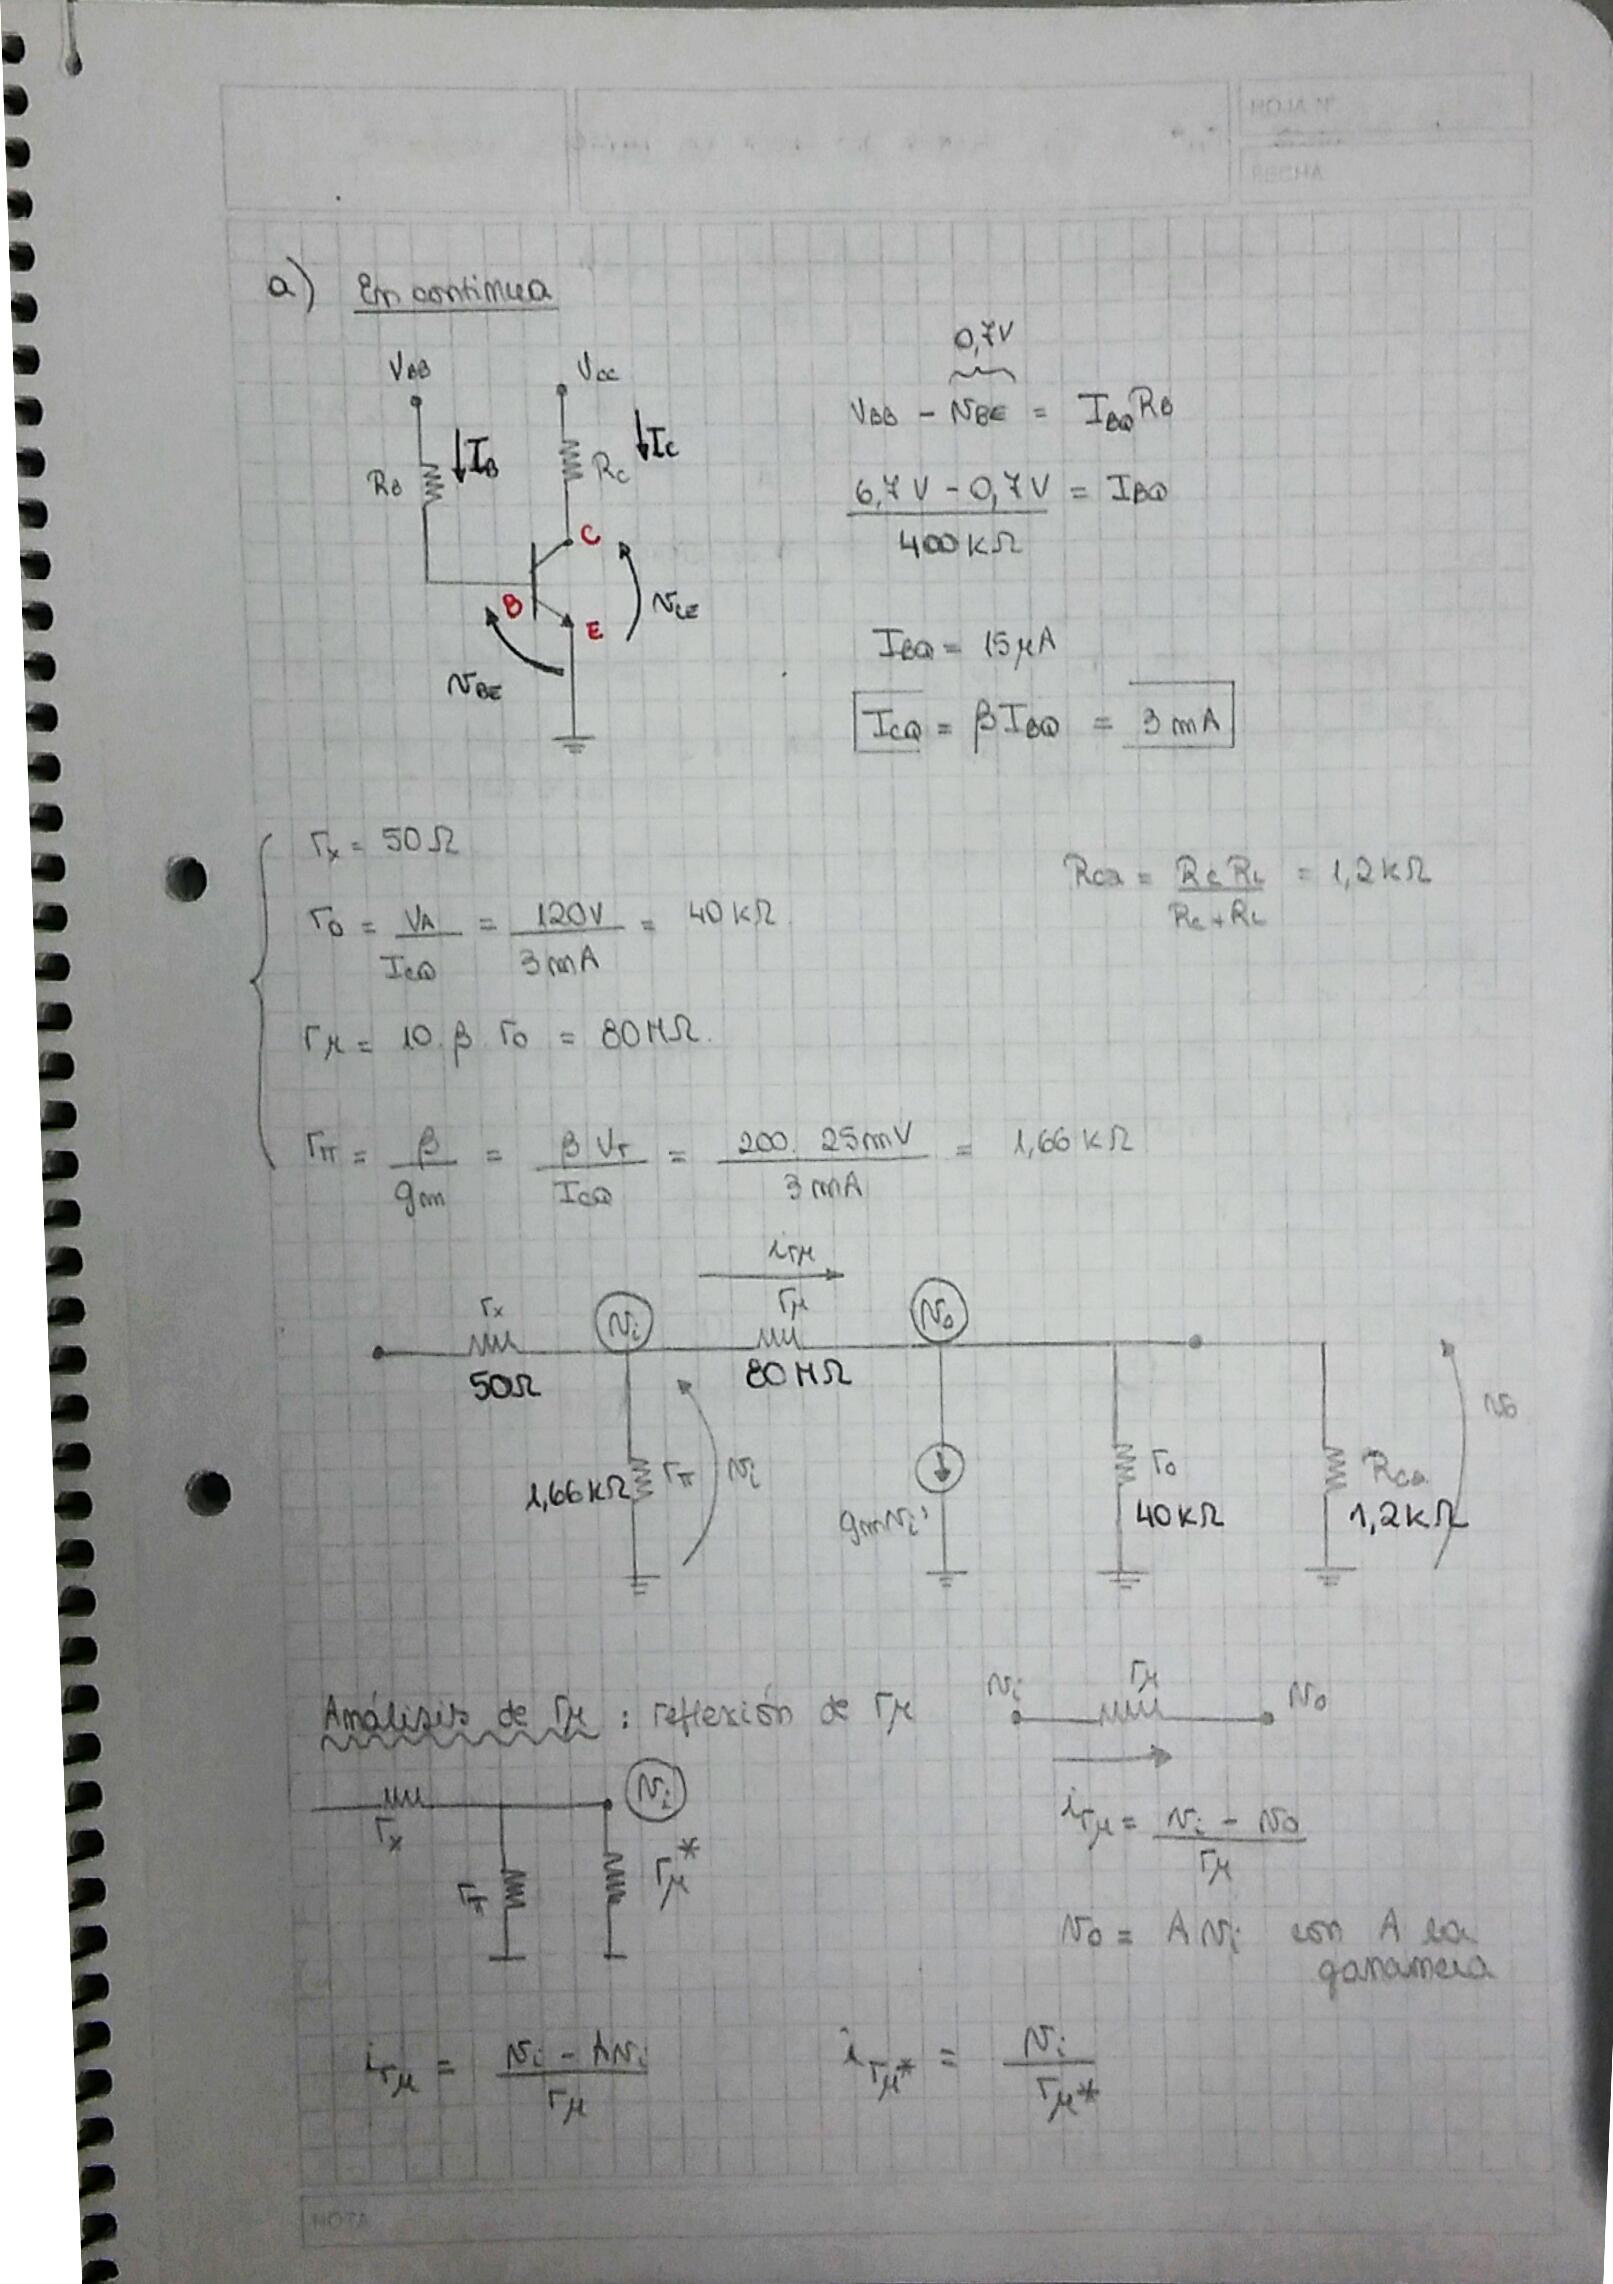 HOJA Nº
FECHA
a) En continua
V_BB
V_CC
I_B
I_C
R_B
R_C
C
B
E
v_CE
v_BE
0,7V
V_BB - v_BE = I_BQ R_B
6,7V - 0,7V = I_BQ
400KΩ
I_BQ = 15μA
I_CQ = β I_BQ = 3mA
r_x = 50Ω
R_ca = R_C R_L / (R_C + R_L) = 1,2KΩ
r_o = V_A / I_CQ = 120V / 3mA = 40KΩ
r_μ = 10. β. r_o = 80MΩ.
r_π = β / gm = β V_T / I_CQ = 200. 25mV / 3mA = 1,66KΩ
i_rμ
r_x v_i r_μ v_o
50Ω 80MΩ
1,66KΩ r_π v_i gm v_i r_o 40KΩ R_ca 1,2KΩ v_o
Análisis de r_μ : reflexión de r_μ
v_i r_μ v_o
r_x v_i
r_π r_μ*
i_rμ = v_i - v_o / r_μ
v_o = A v_i con A la
ganancia
i_rμ = v_i - A v_i / r_μ
i_rμ* = v_i / r_μ*
NOTA